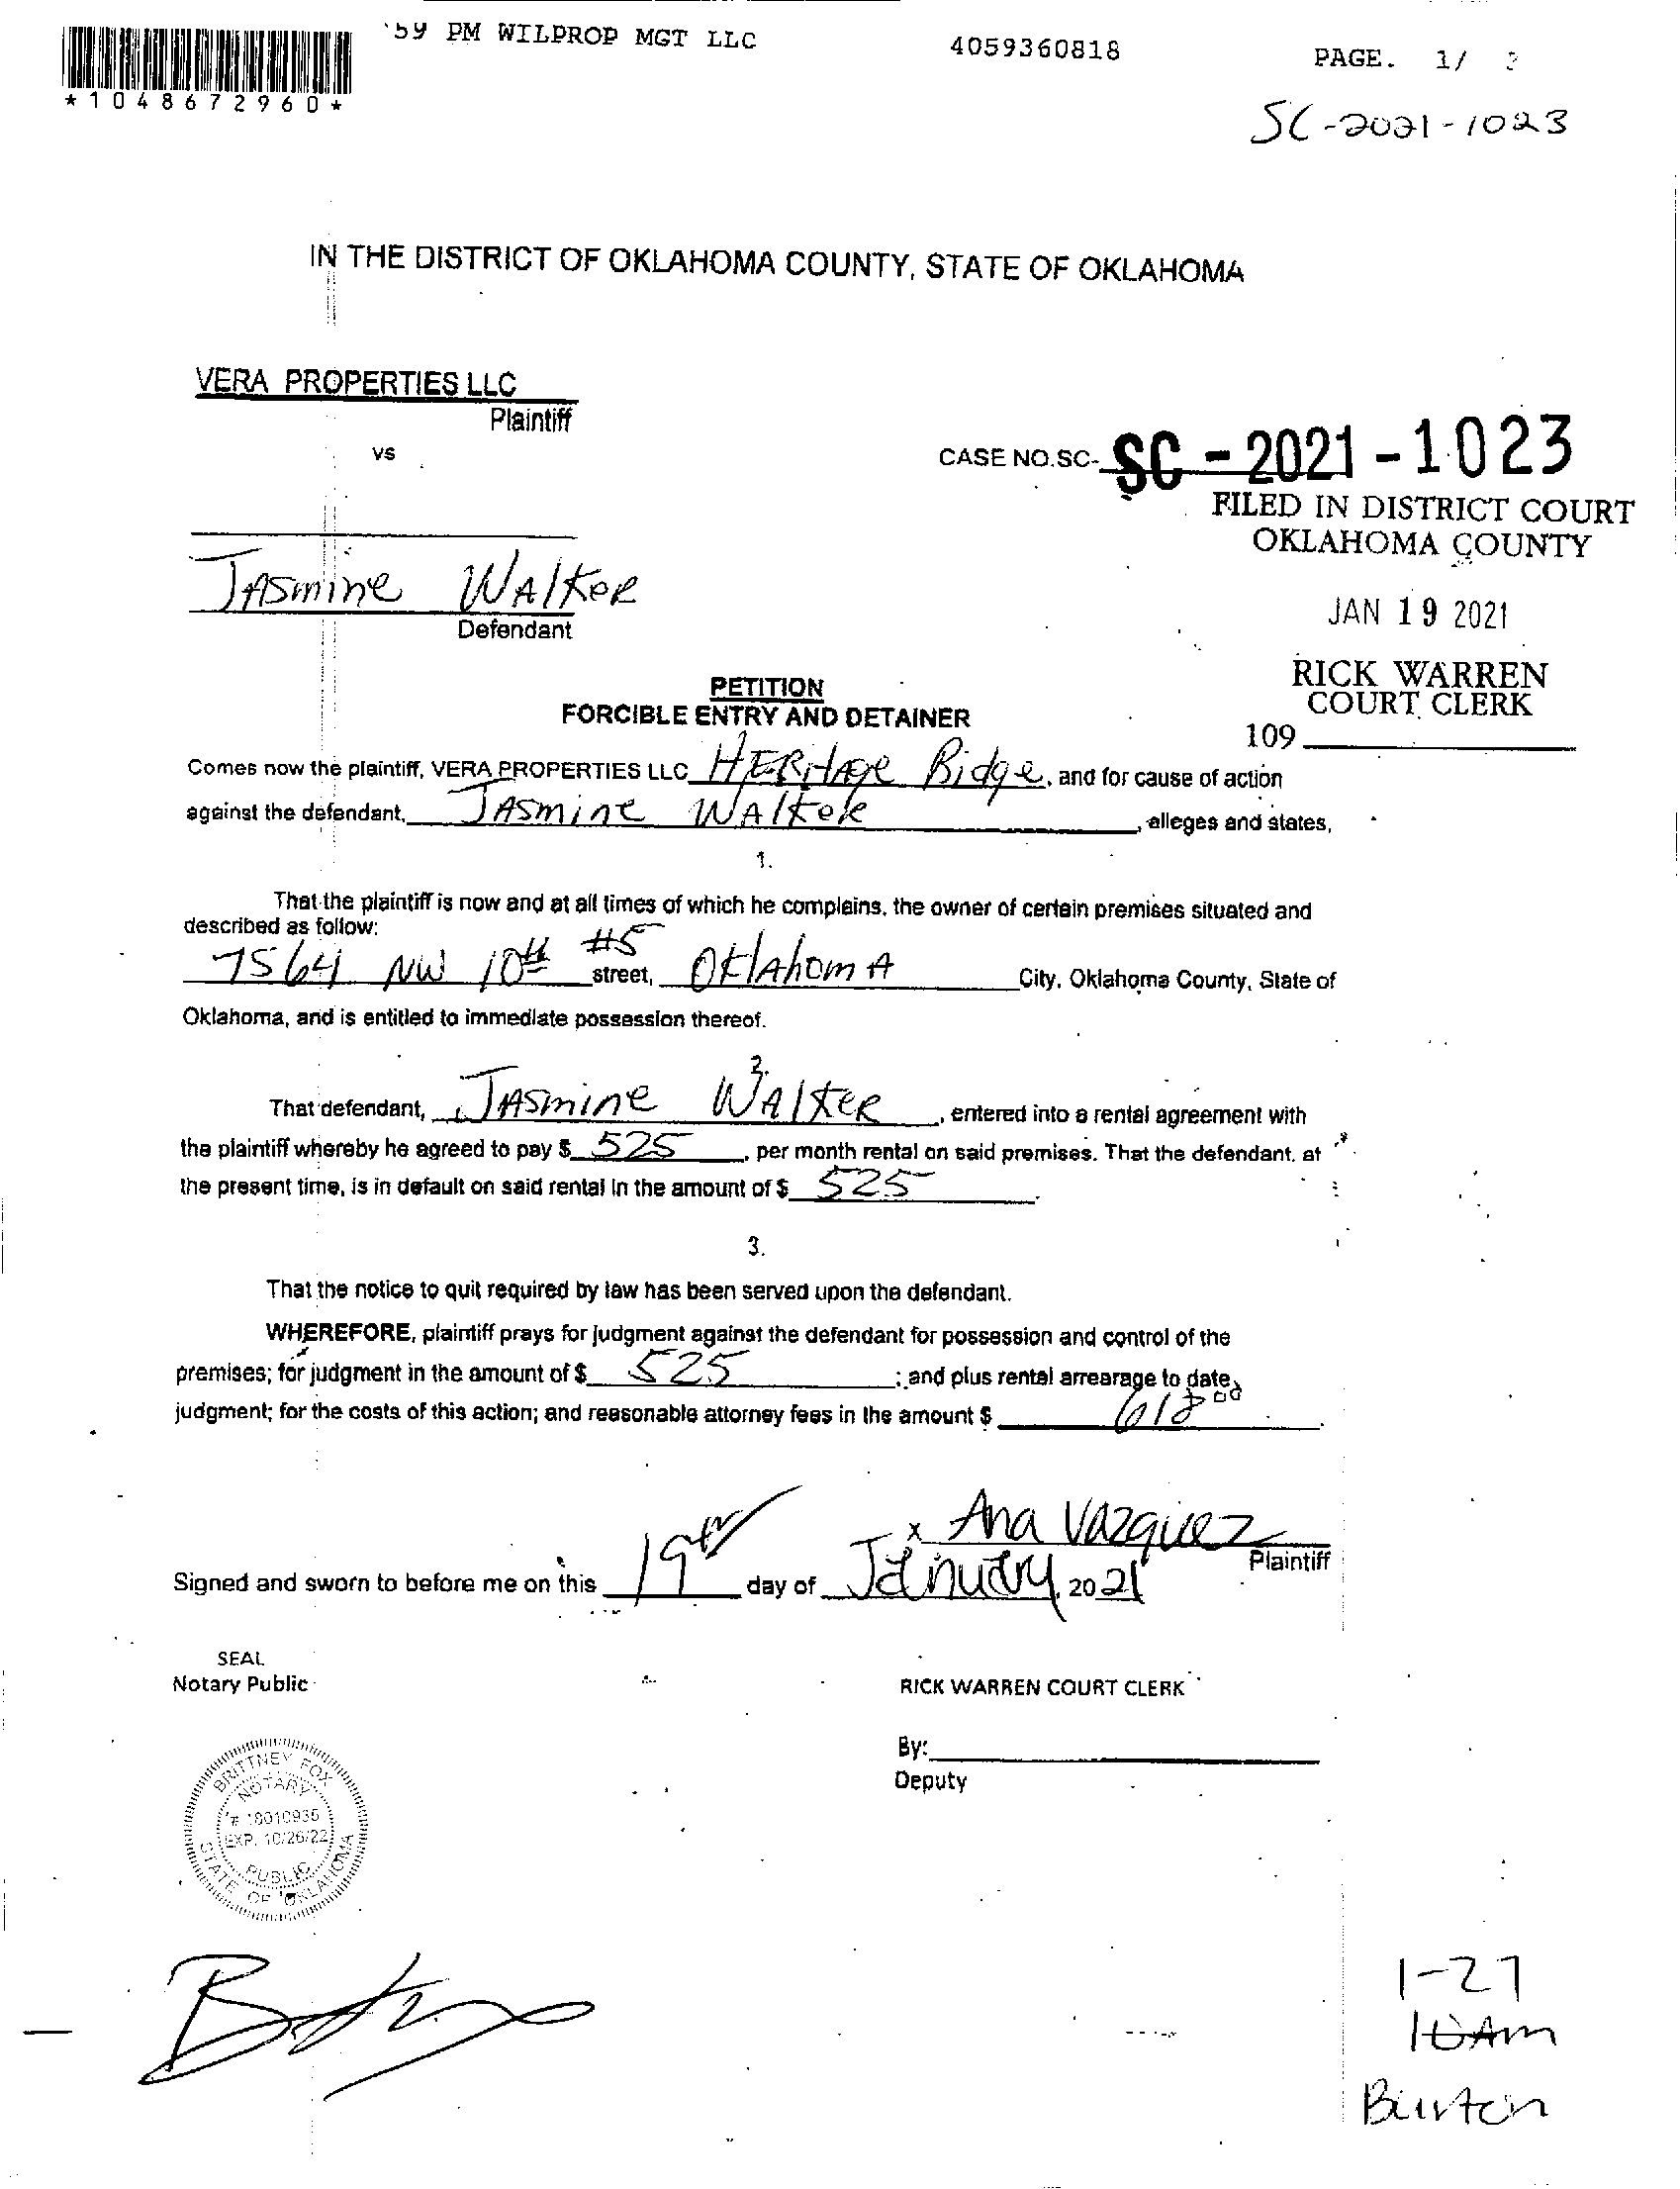 '59 PM WILPROP MGT LLC 4059360818 PAGE. 1/
*1048672960*
SC-2021-1023
IN THE DISTRICT OF OKLAHOMA COUNTY, STATE OF OKLAHOMA
VERA PROPERTIES LLC
Plaintiff
vs
CASE NO.SC- SC-2021-1023
FILED IN DISTRICT COURT
OKLAHOMA COUNTY
JAsmine WAlkeR
Defendant
JAN 19 2021
RICK WARREN
COURT CLERK
109
PETITION
FORCIBLE ENTRY AND DETAINER
Comes now the plaintiff, VERA PROPERTIES LLC HERitAge Ridge, and for cause of action
against the defendant, JAsmine WAlkeR, alleges and states,
1.
That the plaintiff is now and at all times of which he complains, the owner of certain premises situated and
described as follow:
7564 NW 10th #5 street, OklAhomA City, Oklahoma County, State of
Oklahoma, and is entitled to immediate possession thereof.
2.
That defendant, JAsmine WAlkeR, entered into a rental agreement with
the plaintiff whereby he agreed to pay $ 525, per month rental on said premises. That the defendant, at
the present time, is in default on said rental in the amount of $ 525.
3.
That the notice to quit required by law has been served upon the defendant.
WHEREFORE, plaintiff prays for judgment against the defendant for possession and control of the
premises; for judgment in the amount of $ 525; and plus rental arrearage to date,
judgment; for the costs of this action; and reasonable attorney fees in the amount $ 618 00.
x Ana Vazquez
Plaintiff
Signed and sworn to before me on this 19th day of January, 2021
SEAL
Notary Public
RICK WARREN COURT CLERK
By:
Deputy
BRITTNEY FOX
NOTARY
# 18010935
EXP. 10/26/22
PUBLIC
STATE OF OKLAHOMA
1-27
10Am
Burton